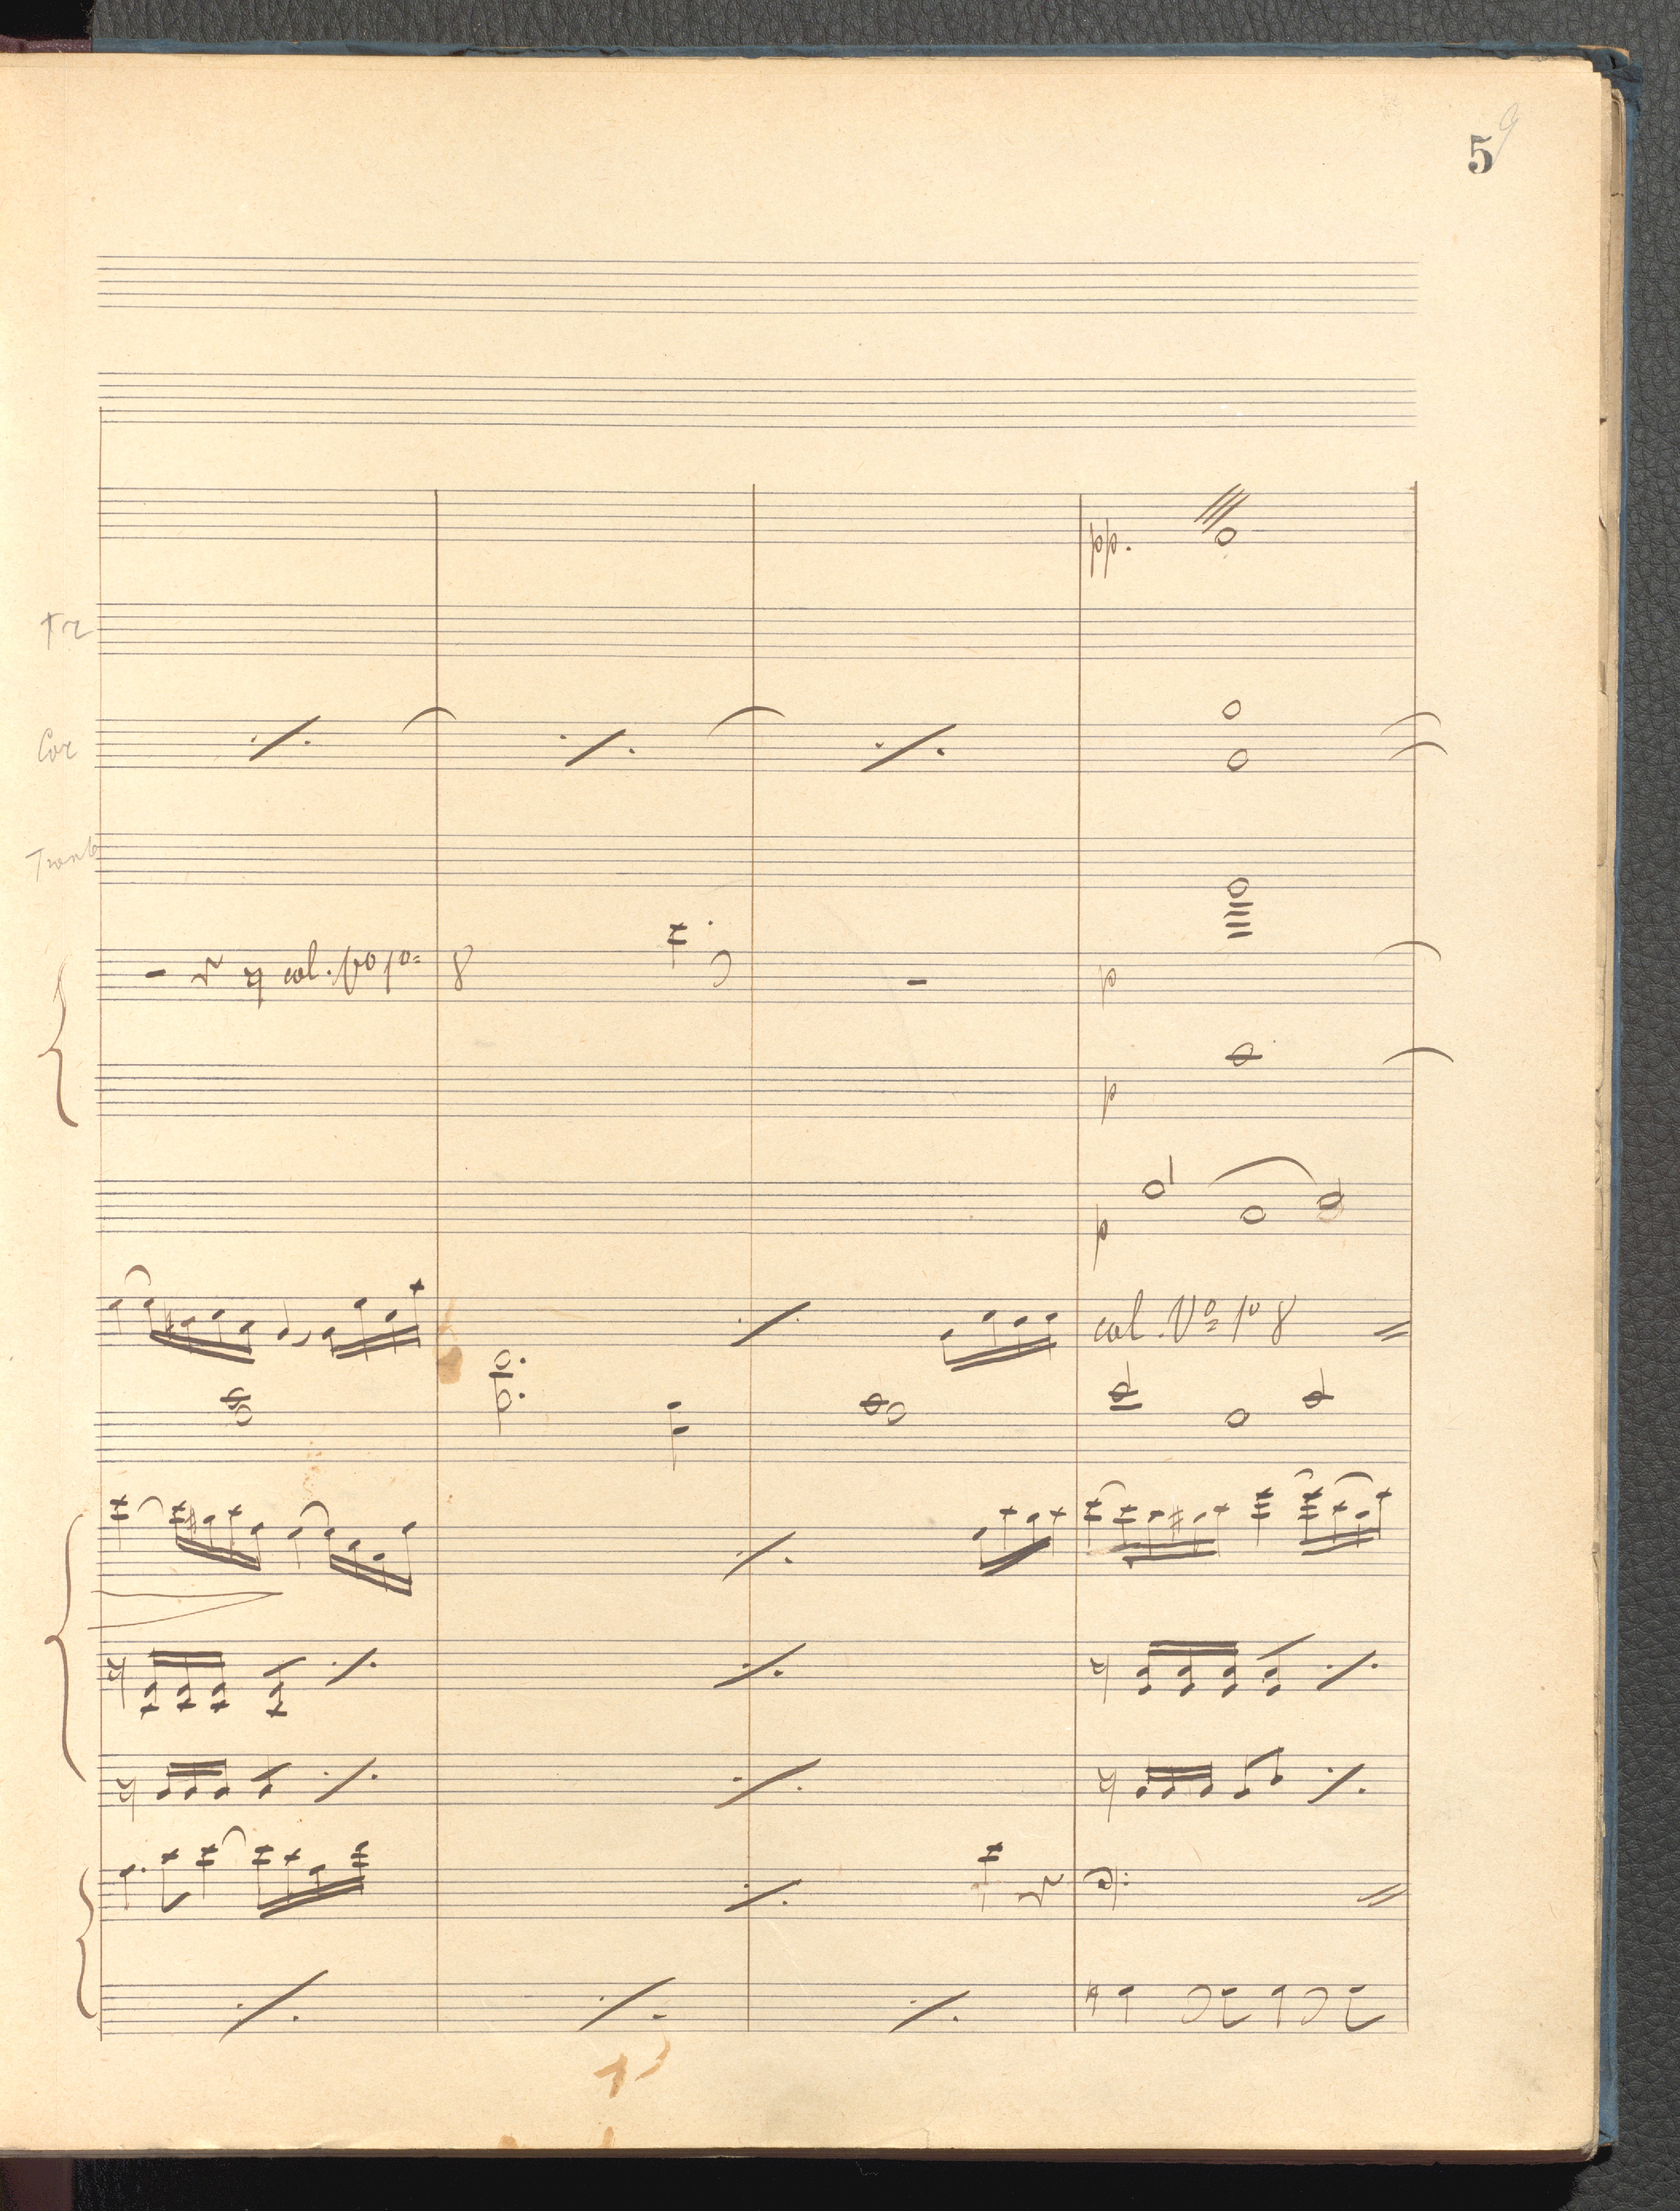 5
9
pp.
Tr
Cor
Tromb
col. Vo 1o 8
p
p
p
col. Vo 1o 8